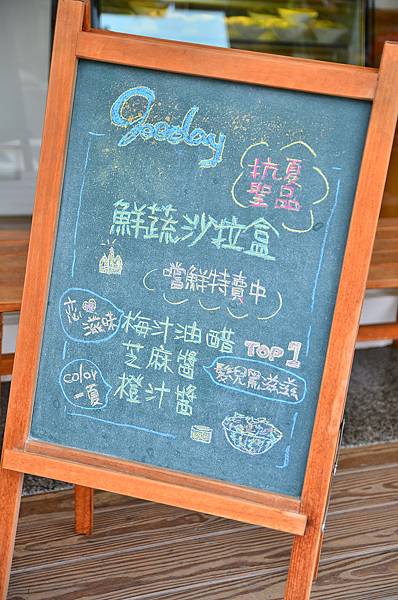 Gooday
抗夏
聖品
鮮蔬沙拉盒
嚐鮮特賣中
戀の
滋味
梅汁油醋
TOP 1
芝麻醬
髮兒黑滋滋
color
一夏
橙汁醬